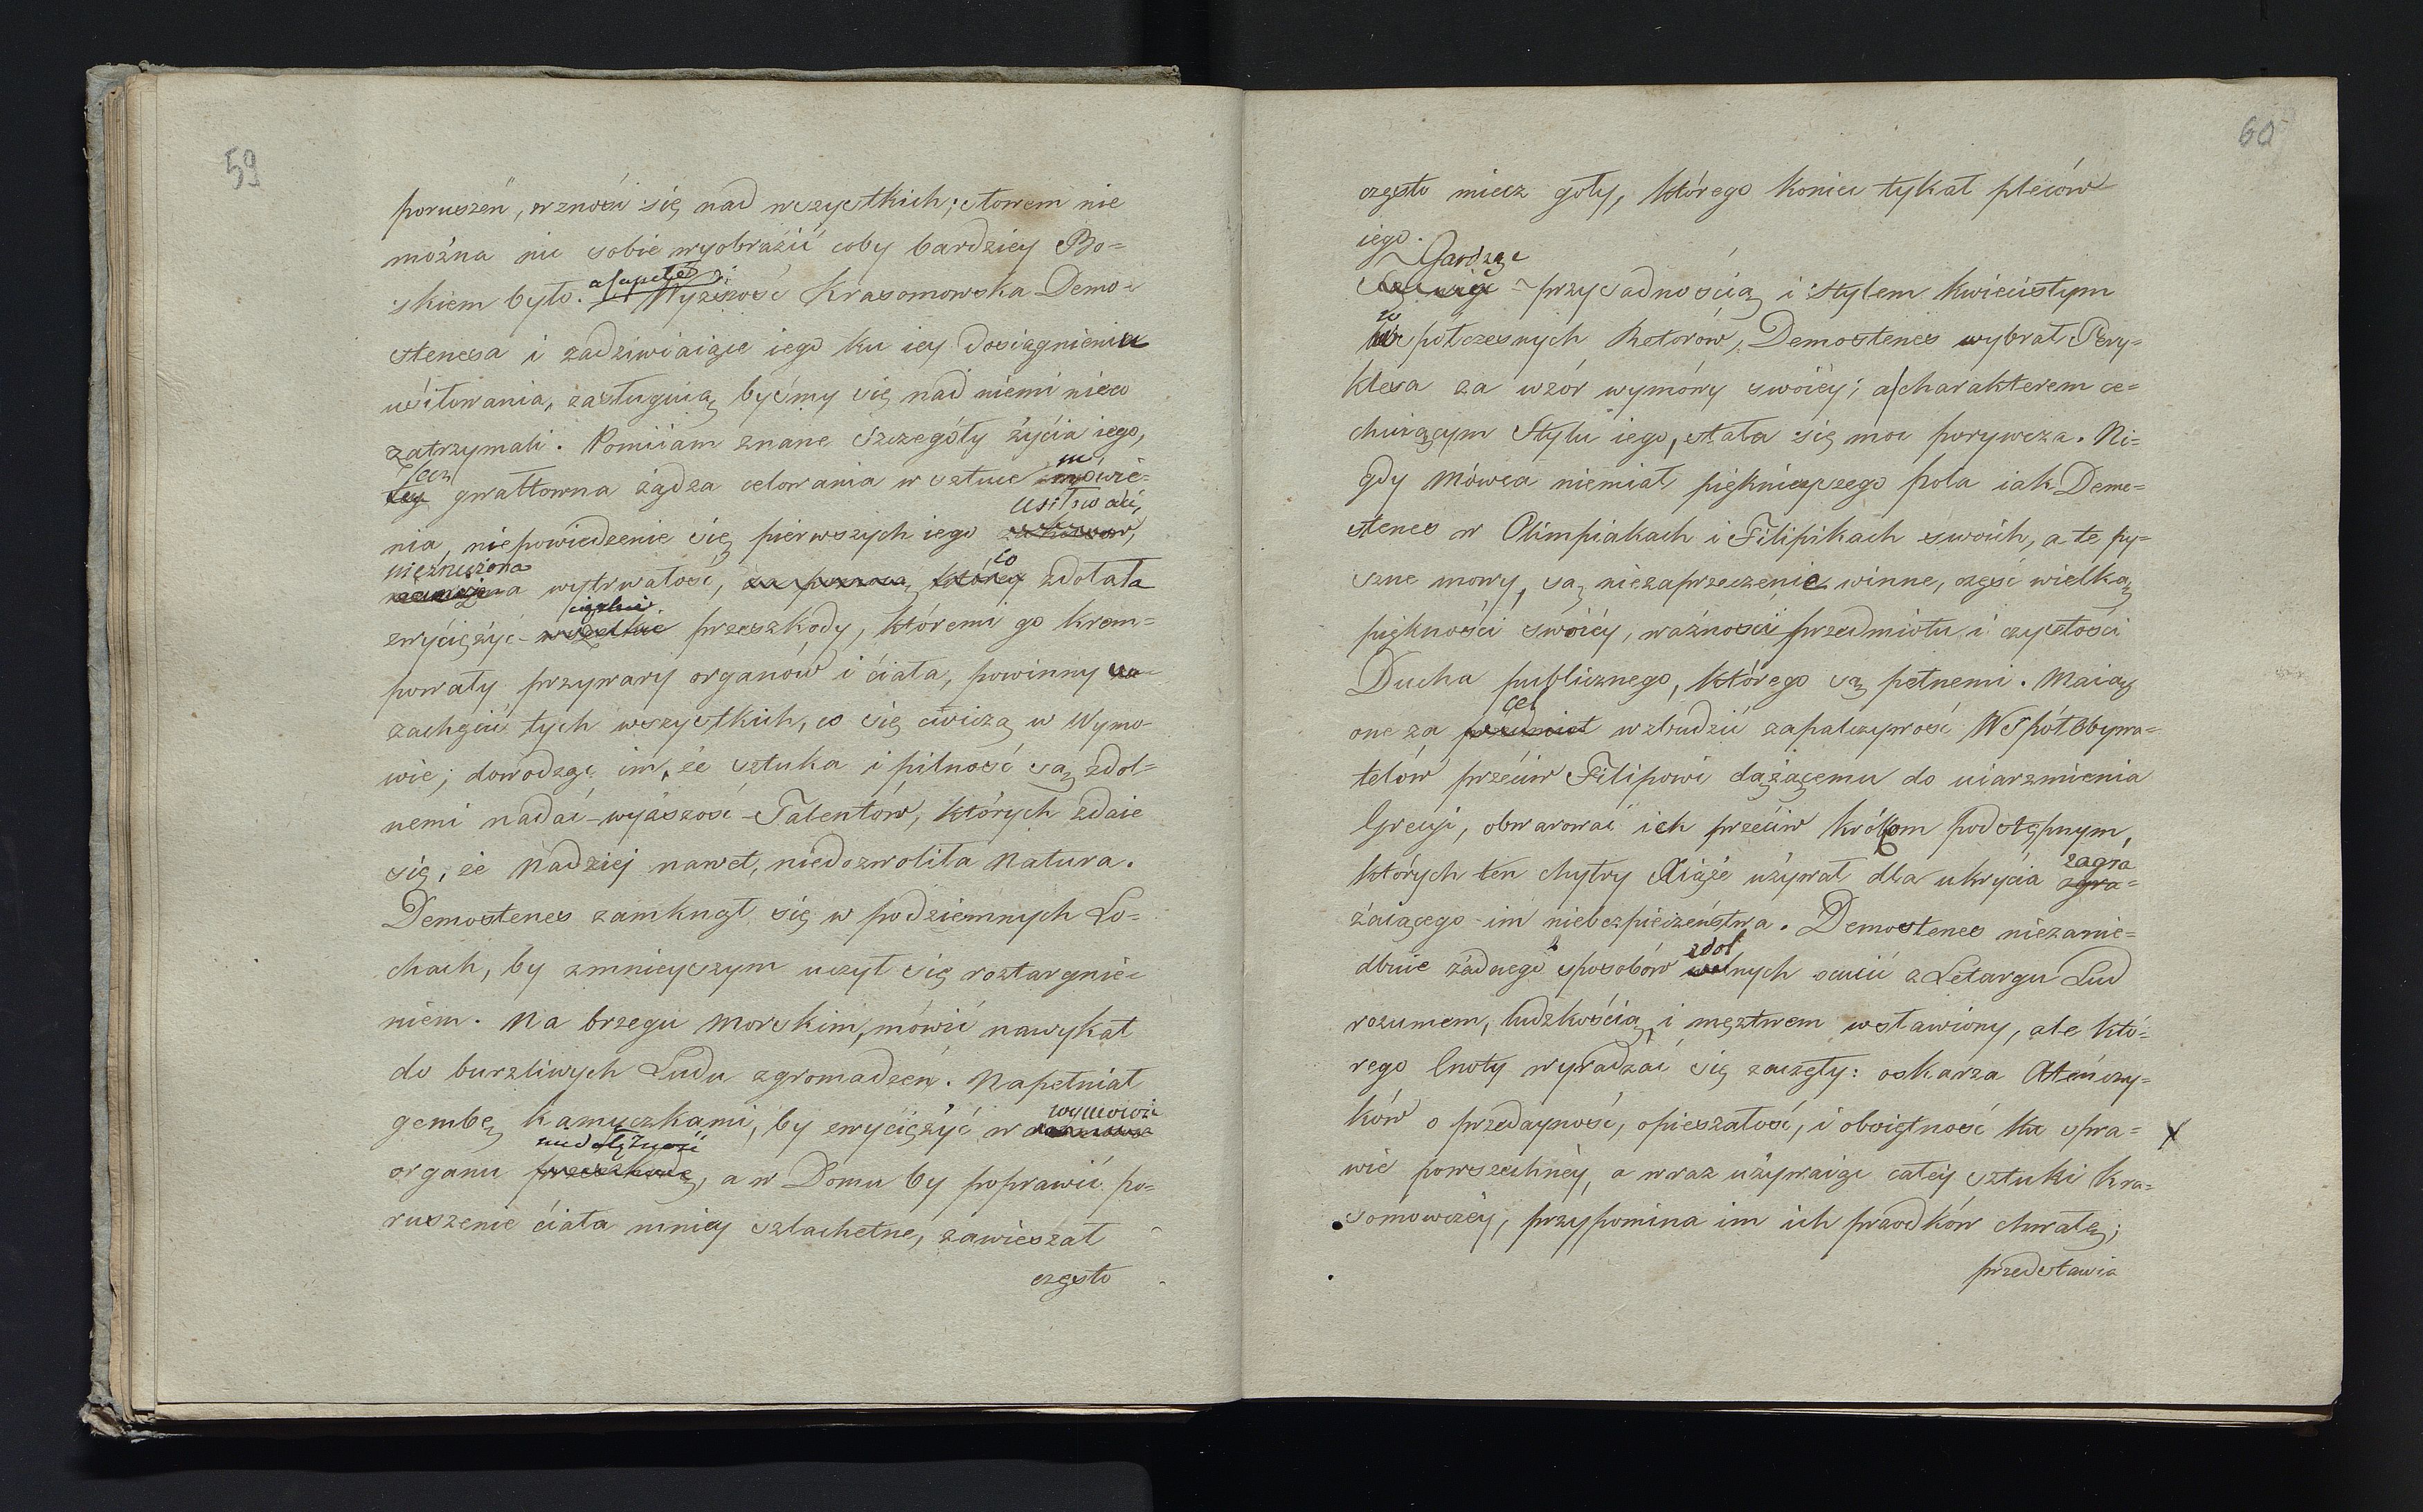 59
poruszeń, wznosi się nad wszystkich; słowem nie
można nic sobie wyobrazić coby bardziey Bo=
skiem było. Wyższość Krasomowska Demo=
stenesa i zadziwiaiące iego ku iey dosiągnieniu
usiłowania, zasługuią byśmy się nad niemi nieco
zatrzymali. Pomiiam znane szczegóły życia iego,
lecz
gwałtowna żądza celowania w sztuce mówie=
usiłowań,
nia, niepowiedzenie się pierwszych iego
niezmęczona co
wytrwałość, którey zdołała
ciężkie
zwyciężyć wszelkie przeszkody, któremi go krem=
powały przywary organów i ciała, powinny
zachęcić tych wszystkich, co się ćwiczą w Wymo=
wie; dowodząc im, że sztuka i pilność są zdol=
nemi nadać wyższość Talentów, których zdaie
się, że nadziej nawet, niedozwoliła Natura.
Demostenes zamknął się w podziemnych Lo=
chach, by zmnieyszym uczył się roztargnie=
niem. Na brzegu morskim, mówić nawykał
do burzliwych Ludu zgromadzeń. Napełniał
wymowie
gembę kamyczkami, by zwyciężyć w
niedołężność
organu przeszkodę, a w Domu by poprawić po=
ruszenie ciała mniey szlachetne, zawieszał
często
60
często miecz goły, którego koniec tykał pleców
iego.
Gardząc
przysadnością i stylem kwiecistym
współczesnych Retorów, Demostenes wybrał Pery=
klesa za wzór wymówy swoiéy; a charakterem ce=
chuiącym Stylu iego, stała się moc porywcza. Ni=
gdy Mówca niemiał pięknieyszego pola iak Demo=
stenes w Olimpiakach i Filipikach swoich, a te py=
szne mowy, są niezaprzeczenie winne, część wielką
piękności swoiéy, ważności przedmiotu i czystości
Ducha publicznego, którego są pełnemi. Maią
cel
one za przedmiot wzbudzić zapalczywość Współobywa=
telów przeciw Filipowi dążącemu do uiarzmienia
Grecyi, obwarować ich przeciw krókom podstępnym,
zagra
których ten chytry Xiąże używał dla ukrycia zgra=
żaiącego im niebezpieczeństwa. Demostenes niezanie=
z zdol
dbuie żadnego sposobów wolnych ocucić z Letargu Lud
rozumem, ludzkością, i męztwem wsławiony, ale któ=
rego Cnoty wyradzać się zaczęły: oskarza Ateńczy=
ków o przedayność, opieszałość, i oboiętność ku spra= x
wie powszechnéy, a wraz używaiąc całéy sztuki kra=
somowczéy, przypomina im ich przodków chwałę;
przedstawia